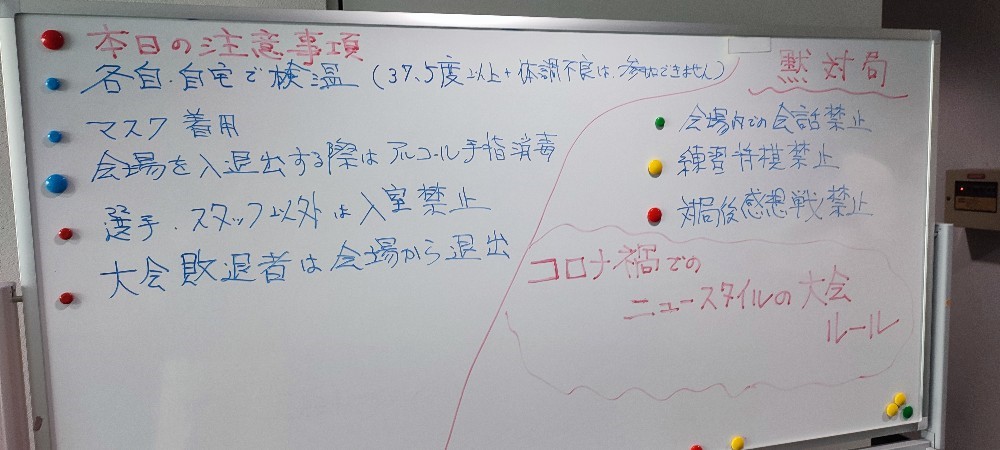 本日の注意事項
各自・自宅で検温（37.5度以上+体調不良は、参加できません）
マスク着用
会場を入退出する際はアルコール手指消毒
選手・スタッフ以外は入室禁止
大会敗退者は会場から退出
黙対局
会場内での会話禁止
練習将棋禁止
対局後感想戦禁止
コロナ禍での
ニュースタイルの大会
ルール